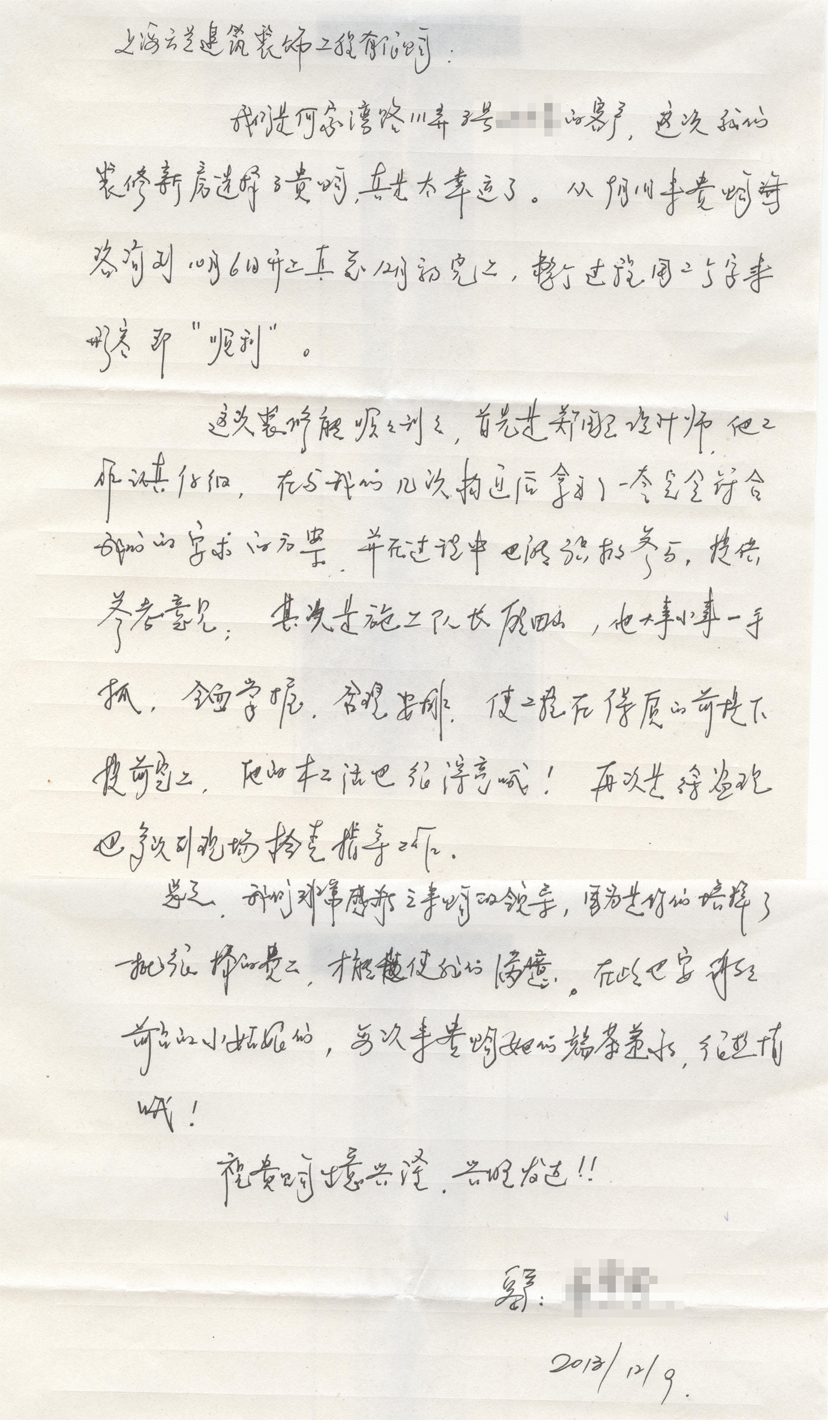 上海云兰建筑装饰工程有限公司:
我们是何家湾路111弄3号 的客户,这次我们
装修新房选择了贵公司,真是太幸运了。从9月11日来贵公司
咨询到10月6日开工直至12月初完工,整个过程用二个字来
形容即"顺利"。
这次装修能顺顺利利,首先是郑 设计师,他工
作认真仔细,在与我们几次沟通后拿出了一套完全符合
我们的要求的方案,并在过程中也积极参与,提供
参考意见;其次是施工队长 ,他大事小事一手
抓,全面掌握,合理安排,使工程在保质的前提下
提前完工,他的木工活也很漂亮哦!再次是徐
也多次到现场检查指导工作。
总之,我们非常感谢 公司的领导,因为是你们培养了
一批很棒的员工,才能使我们满意。在此也要谢谢
前台的小姑娘们,每次来贵公司她们端茶 水,很热情
哦!
祝贵公司生意兴隆,兴旺发达!!
客户:
2013/12/9.